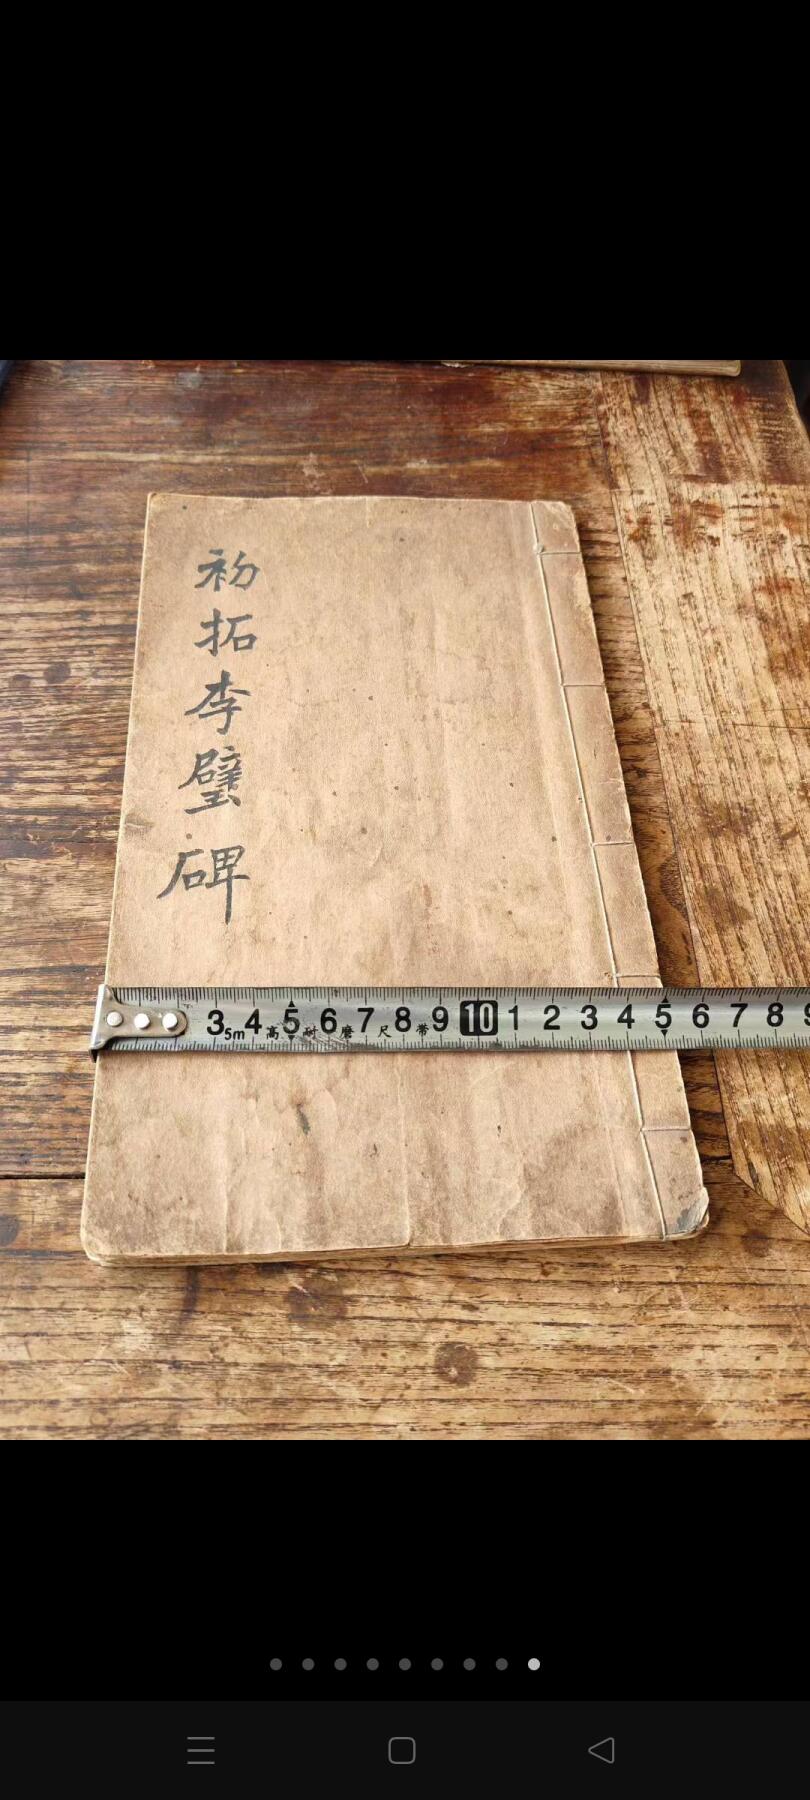 初拓李璧碑
3 4 5 6 7 8 9 10 1 2 3 4 5 6 7 8 9
5m 高耐磨尺带